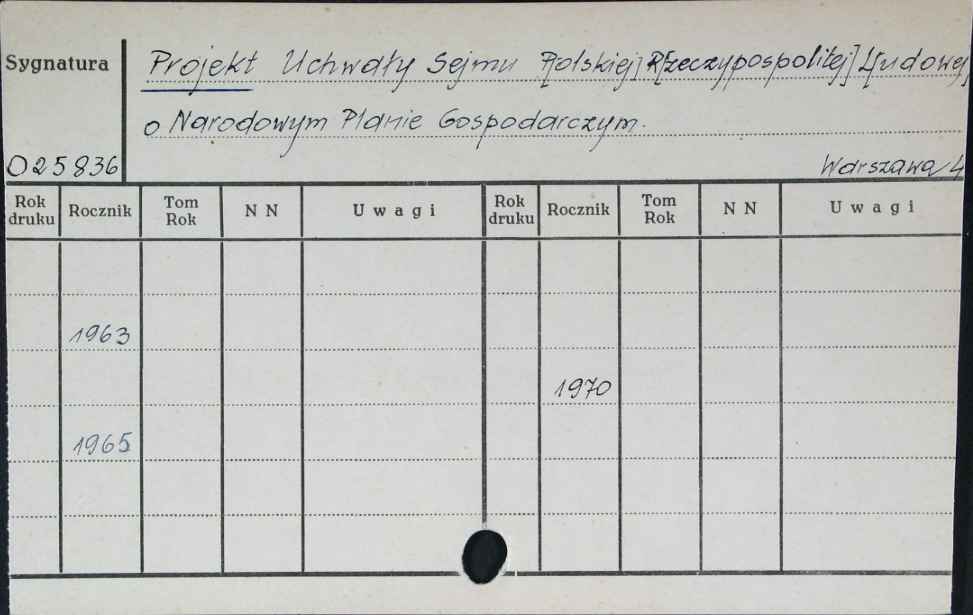 Sygnatura
Projekt Uchwały Sejmu P[olskiej] R[zeczypospolitej] L[udowej
o Narodowym Planie Gospodarczym.
025836
Warszawa 4
Rok druku Rocznik Tom Rok N N Uwagi Rok druku Rocznik Tom Rok N N Uwagi
1963
1970
1965